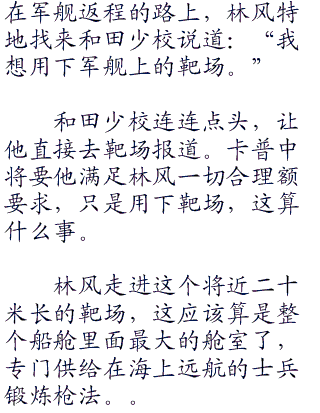 在军舰返程的路上，林风特
地找来和田少校说道：“我
想用下军舰上的靶场。”
和田少校连连点头，让
他直接去靶场报道。卡普中
将要他满足林风一切合理额
要求，只是用下靶场，这算
什么事。
林风走进这个将近二十
米长的靶场，这应该算是整
个船舱里面最大的舱室了，
专门供给在海上远航的士兵
锻炼枪法。。